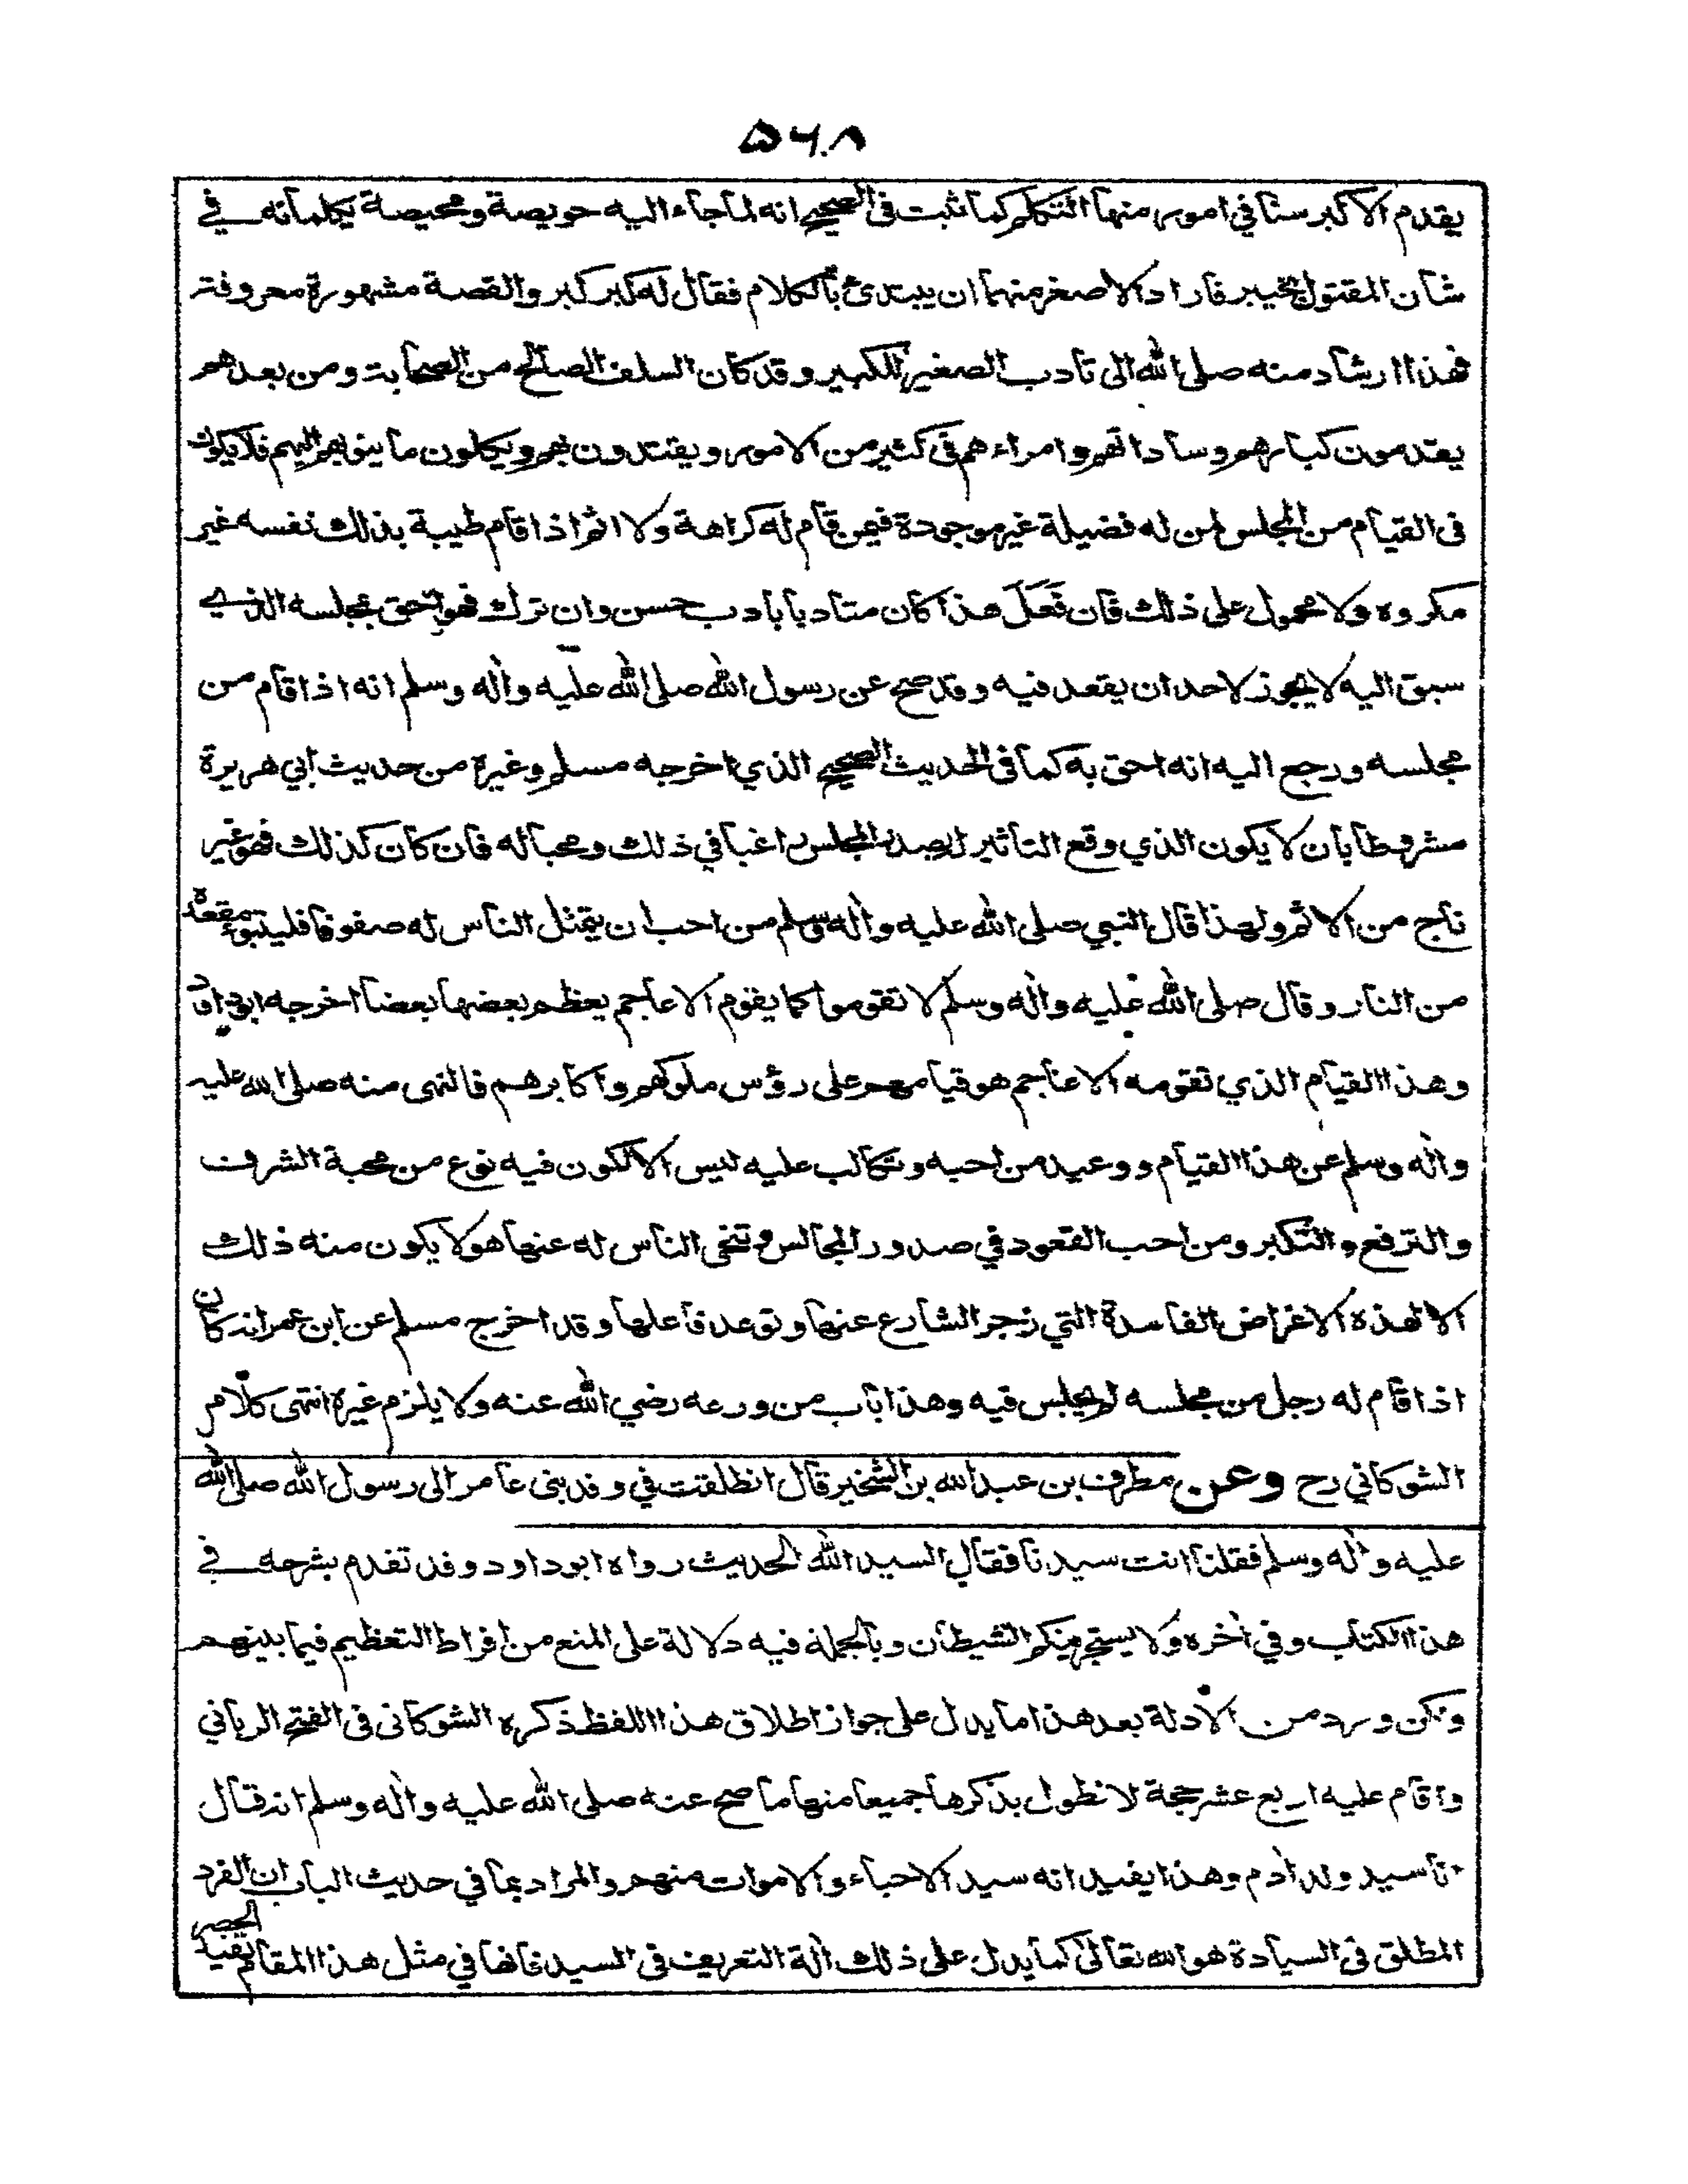 ۵۶۸
يقدم الاكبر سنا في امور منها التكلم كما ثبت في الصحيح انه لما جاء اليه حويصة ومحيصة يكلمانه في
شأن المقتول بخيبر فاراد الاصغر منهما ان يبتدئ بالكلام فقال له كبر كبر والقصة مشهورة معروفة
فهذا ارشاد منه صلى الله الى تادب الصغير للكبير وقد كان السلف الصالح من الصحابة ومن بعدهم
يقدمون كبارهم وساداتهم وامراءهم في كثير من الامور ويقتدون بهم ويكلون ما ينوبهم اليهم فلا يكون
في القيام من المجلس لمن له فضيلة غير موجودة فيمن قام له كراهة ولا اثم اذا قام طيبة بذلك نفسه غير
مكروه ولا محمول على ذلك فان فَعَلَ هذا كان متادبا بادب حسن وان ترك فهو احق بمجلسه الذي
سبق اليه لا يجوز لاحد ان يقعد فيه وقد صح عن رسول الله صلى الله عليه واله وسلم انه اذا قام من
مجلسه ورجع اليه انه احق به كما في الحديث الصحيح الذي اخرجه مسلم وغيره من حديث ابي هريرة
مشروطا بان لا يكون الذي وقع التاثير له بصدر المجلس راغبا في ذلك ومحبا له فان كان كذلك فهو غير
ناج من الاثم ولهذا قال النبي صلى الله عليه واله وسلم من احب ان يتمثل الناس له صفوفا فليتبوء مقعده
من النار وقال صلى الله عليه واله وسلم لا تقوموا كما يقوم الاعاجم يعظم بعضها بعضا اخرجه ابو داود
وهذا القيام الذي تقومه الاعاجم هو قيامهم على رؤس ملوكهم واكابرهم فالنهى منه صلى الله عليه
واله وسلم عن هذا القيام ووعيد من احبه وتكالب عليه ليس الا لكون فيه نوع من محبة الشرف
والترفع والتكبر ومن احب القعود في صدور المجالس وتنحى الناس له عنها هو لا يكون منه ذلك
الا لهذه الاغراض الفاسدة التي زجر الشارع عنها وتوعد فاعلها وقد اخرج مسلم عن ابن عمر انه كان
اذا قام له رجل من مجلسه لم يجلس فيه وهذا باب من ورعه رضي الله عنه ولا يلزم غيره انتهى كلام
الشوكاني رح وعن مطرف بن عبد الله بن الشخير قال انطلقت في وفد بنى عامر الى رسول الله صلى الله
عليه واله وسلم فقلنا انت سيدنا فقال السيد الله الحديث رواه ابو داود وقد تقدم بشرحه في
هذا الكتاب وفي آخره ولا يستجرينكم الشيطان وبالجملة فيه دلالة على المنع من افراط التعظيم فيما بينهم
ولكن ورد من الادلة بعد هذا ما يدل على جواز اطلاق هذا اللفظ ذكره الشوكانى في الفتح الرباني
واقام عليه اربع عشر حجة لا نطول بذكرها جميعا منها ما صح عنه صلى الله عليه واله وسلم انه قال
انا سيد ولد آدم وهذا يفيد انه سيد الاحياء والاموات منهم والمراد بما في حديث الباب ان الفرد
المطلق في السيادة هو الله تعالى كما يدل على ذلك آلة التعريف في السيد فانها في مثل هذا المقام تفيد الحصر